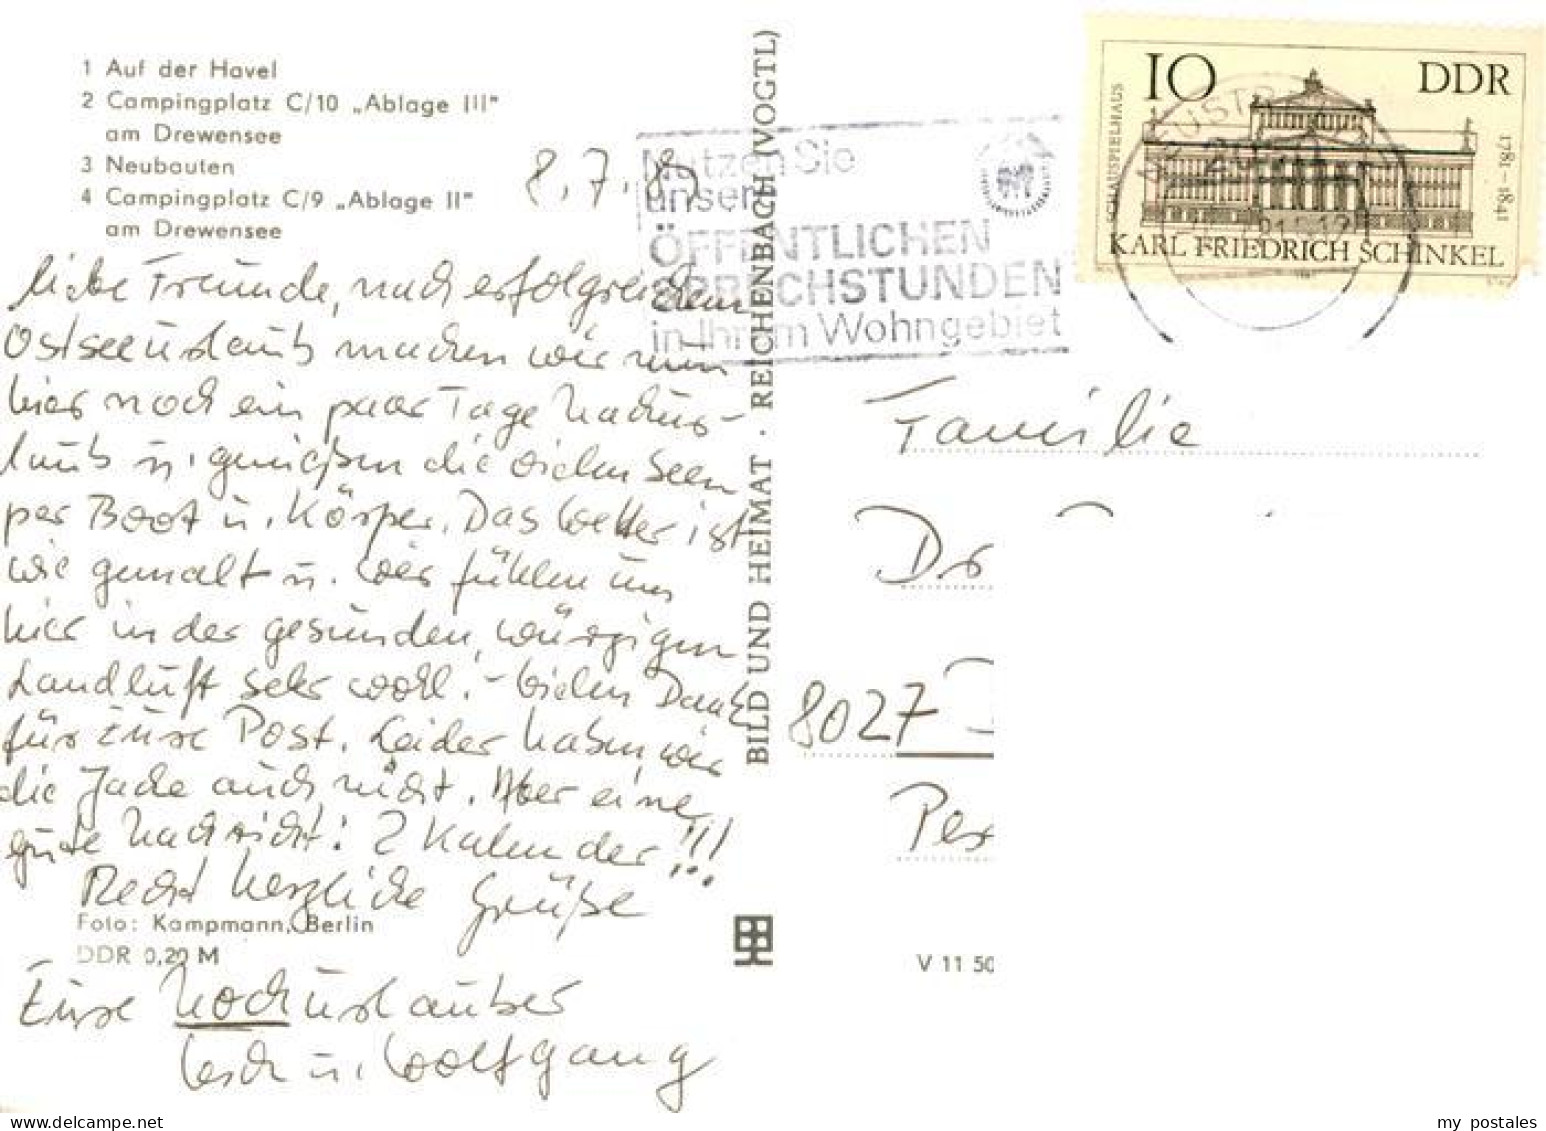 1 Auf der Havel
2 Campingplatz C/10 „Ablage III"
am Drewensee
3 Neubauten
4 Campingplatz C/9 „Ablage II"
am Drewensee
8.7.85
liebe Freunde, nach erfolgreichem
Ostseeurlaub machen wir nun
hier noch ein paar Tage Nachur-
laub u. genießen die vielen Seen
per Boot u. Körper. Das Wetter ist
wie gemalt u. wir fühlen uns
hier in der gesunden, würzigen
Landluft sehr wohl. – Vielen Dank
für Eure Post. Leider haben wir
die Jacke auch nicht. Aber eine
gute Nachricht: 2 Kalender!!!
Recht herzliche Grüße
Foto: Kampmann, Berlin
DDR 0,20 M
Eure Nochurlauber
u. Wolfgang
BILD UND HEIMAT · REICHENBACH (VOGTL)
Nutzen Sie
unsere
ÖFFENTLICHEN
SPRECHSTUNDEN
in Ihrem Wohngebiet
10 DDR
SCHAUSPIELHAUS
1781–1841
KARL FRIEDRICH SCHINKEL
Familie
Dr
8027
Per
V 11 50
my postales